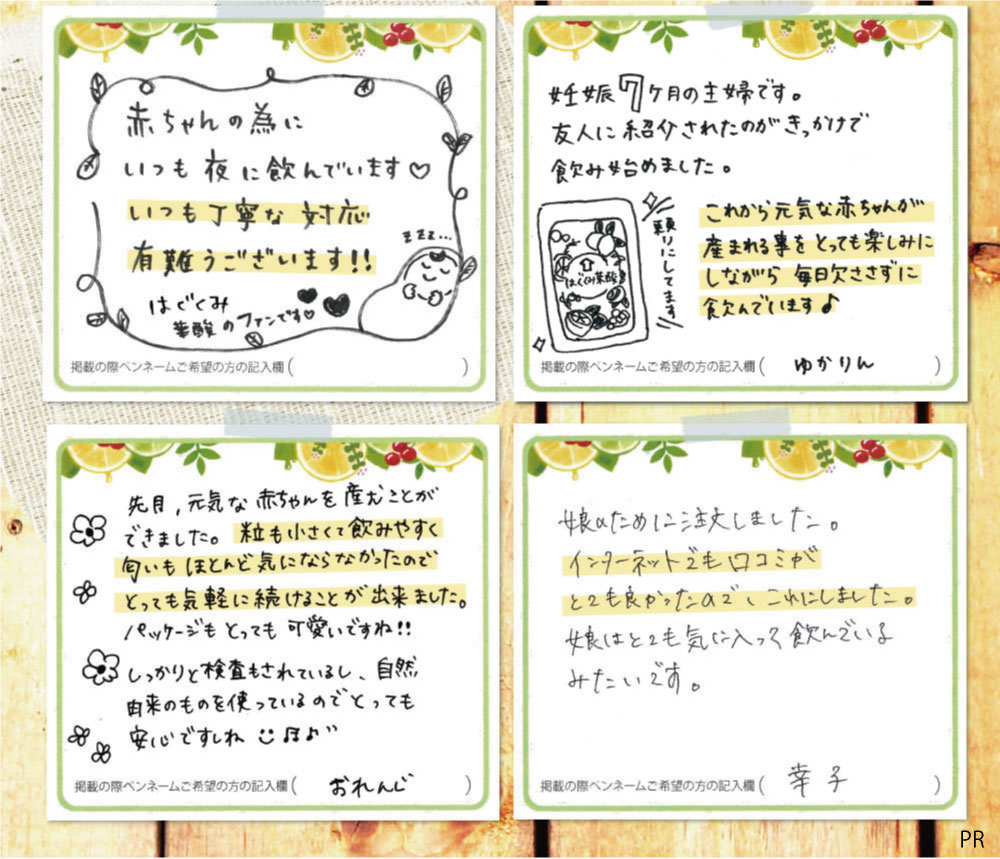 赤ちゃんの為に
いつも夜に飲んでいます♡
いつも丁寧な対応
有難うございます!!
zzz...
はぐくみ
葉酸のファンです♡
掲載の際ペンネームご希望の方の記入欄( )
妊娠7ケ月の主婦です。
友人に紹介されたのがきっかけで
飲み始めました。
はぐくみ葉酸
頼りにしてます
これから元気な赤ちゃんが
産まれる事をとっても楽しみに
しながら毎日欠さずに
飲んでいます♪
掲載の際ペンネームご希望の方の記入欄( ゆかりん )
先月,元気な赤ちゃんを産むことが
できました。粒も小さくて飲みやすく
匂いもほとんど気にならなかったので
とっても気軽に続けることが出来ました。
パッケージもとっても可愛いですね!!
しっかりと検査もされているし、自然
由来のものを使っているのでとっても
安心ですしね
掲載の際ペンネームご希望の方の記入欄( おれんじ )
娘のために注文しました。
インターネットでも口コミが
とても良かったので、これにしました。
娘はとても気に入って飲んでいる
みたいです。
掲載の際ペンネームご希望の方の記入欄( 幸子 )
PR